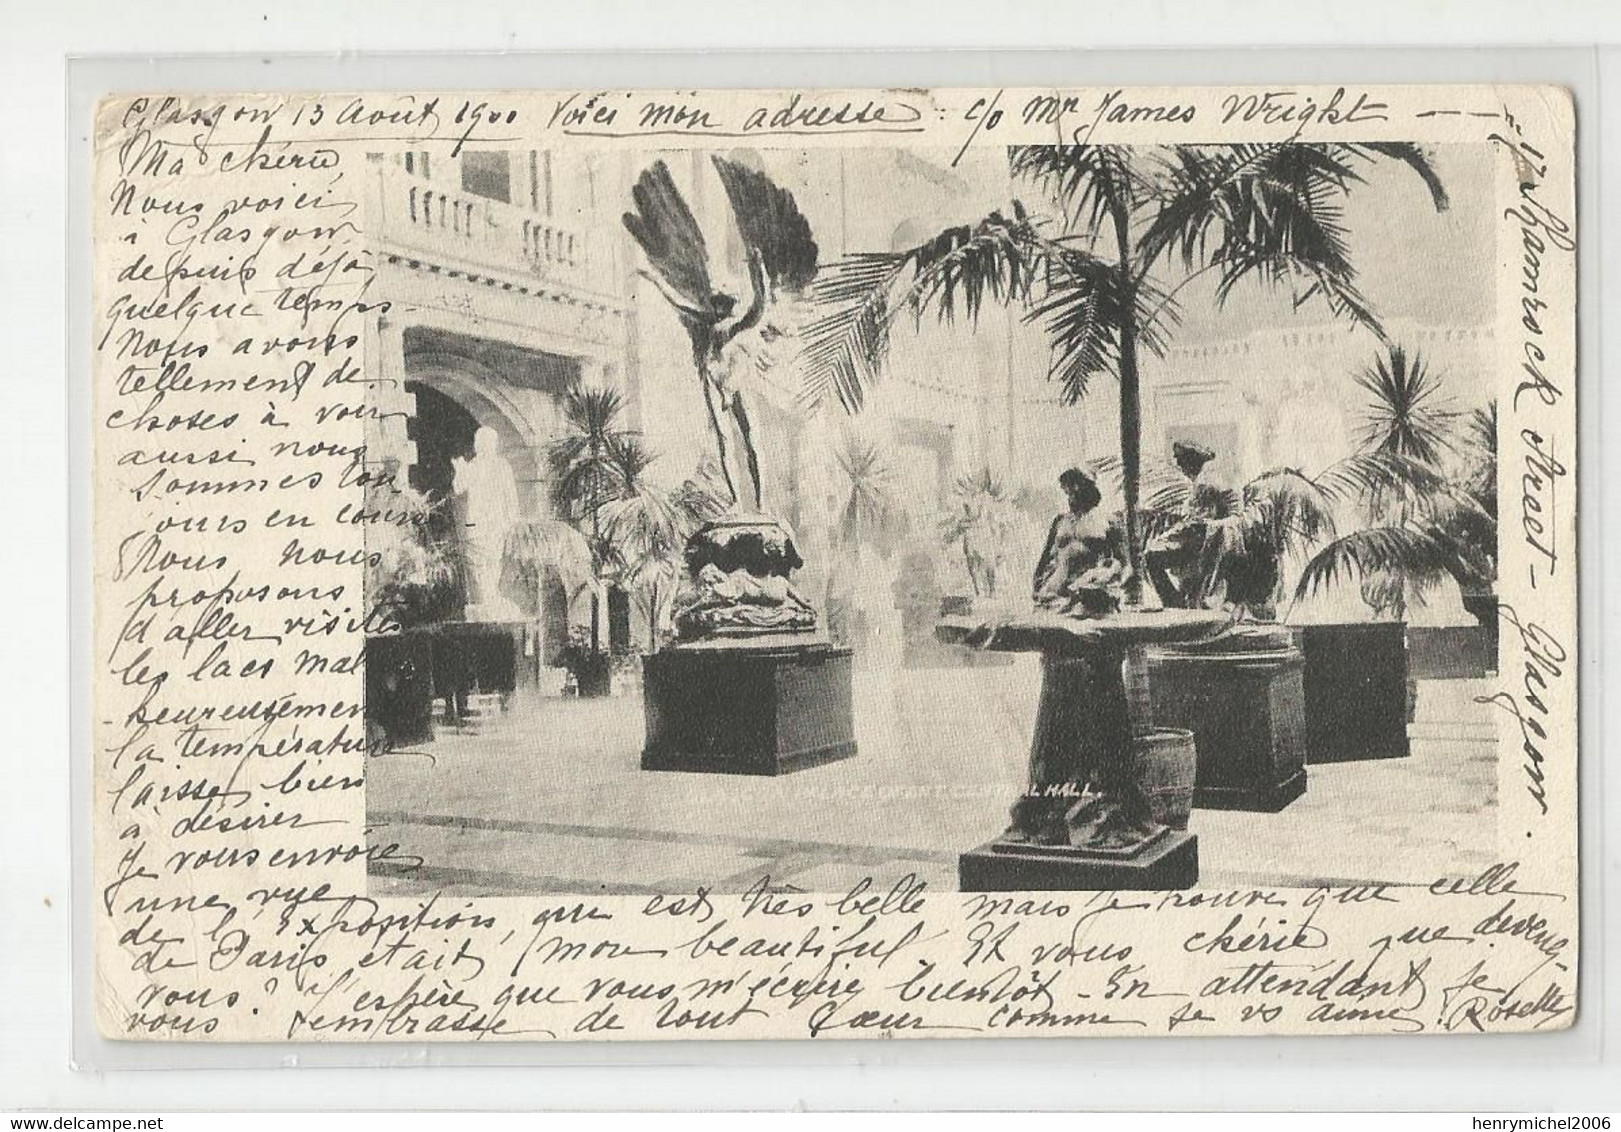 Glasgow 13 Août 1900 Voici mon adresse : c/o Mr James Wright
17 Shamrock Street - Glasgow.
Ma chérie,
Nous voici
à Glasgow
depuis déjà
quelque temps
Nous avons
tellement de
choses à voir
aussi nous
sommes tou-
jours en course.
Nous nous
proposons
d'aller visiter
les lacs mal
heureusement
la température
laisse bien
à désirer
Je vous envoie
une vue
de l'Exposition, qui est très belle mais je trouve que celle
de Paris était more beautiful. Et vous chérie que devenez-
vous? J'espère que vous m'écrire bientôt - En attendant je
vous embrasse de tout cœur comme je vs aime. Rosette
CENTRAL HALL.
henrymichel2006